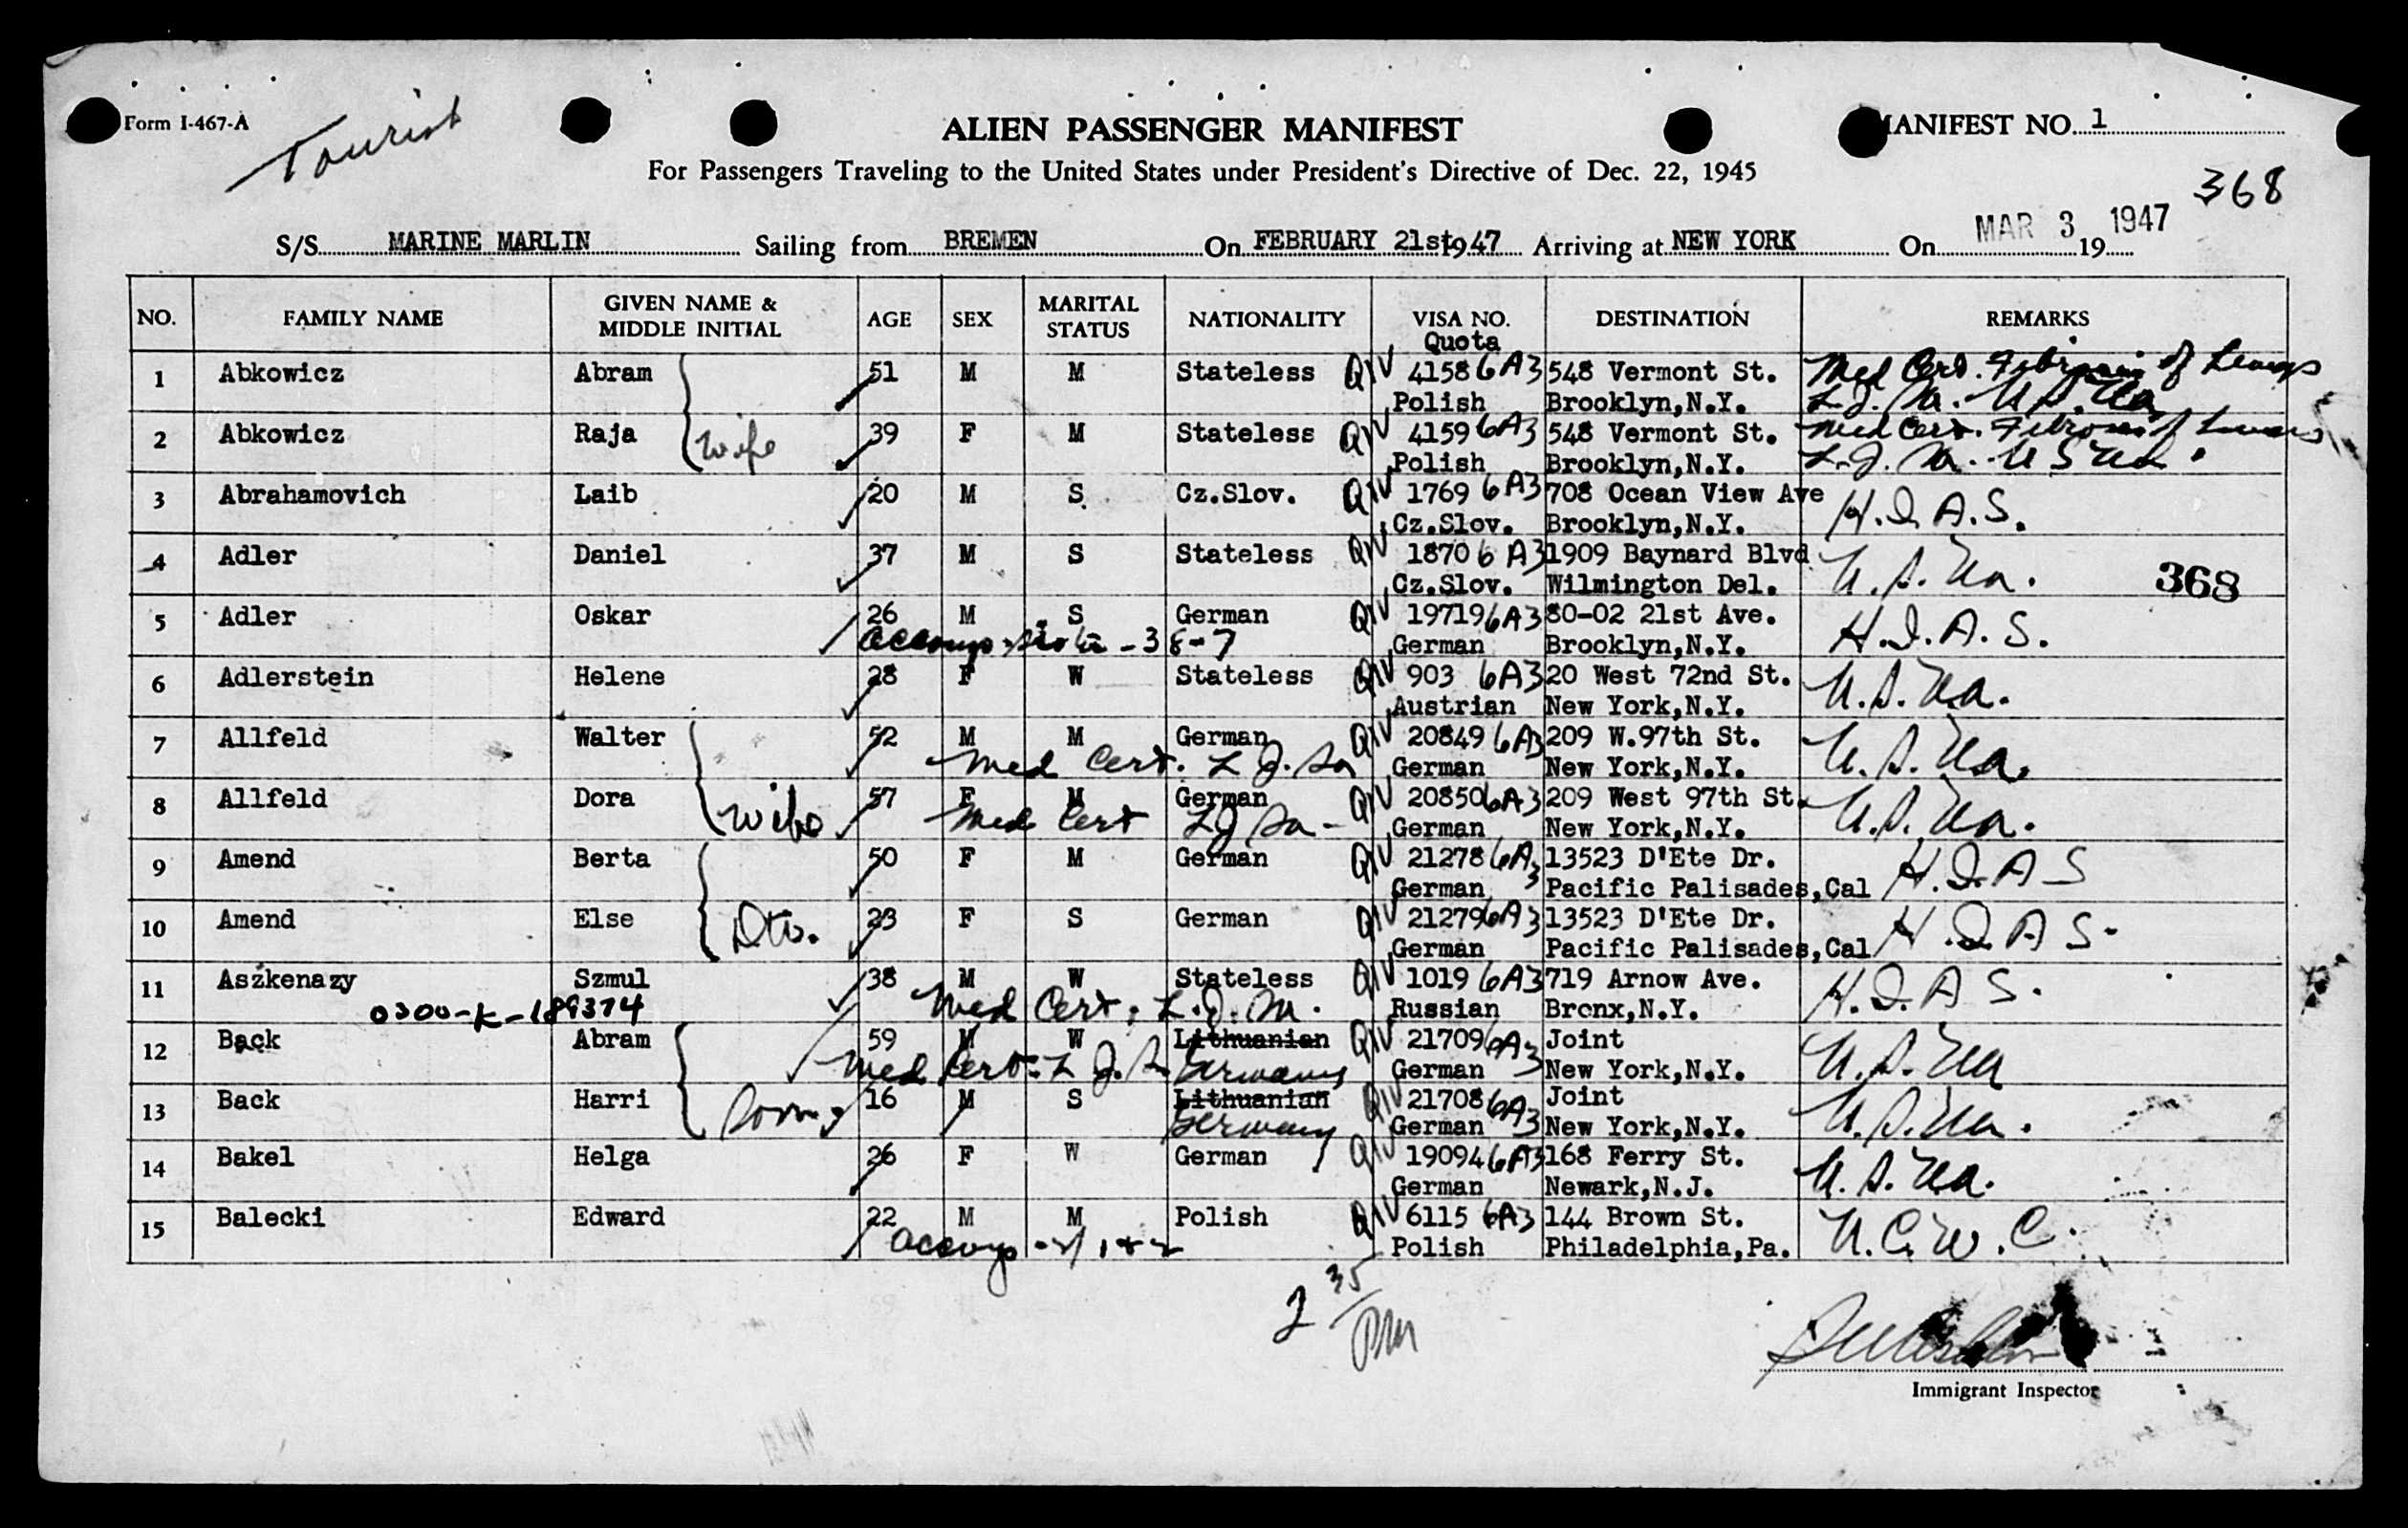 Form I-467-A
Tourist
ALIEN PASSENGER MANIFEST
MANIFEST NO. 1
For Passengers Traveling to the United States under President's Directive of Dec. 22, 1945
368
S/S MARINE MARLIN Sailing from BREMEN On FEBRUARY 21st 1947 Arriving at NEW YORK On MAR 3 1947 19
NO. FAMILY NAME GIVEN NAME & MIDDLE INITIAL AGE SEX MARITAL STATUS NATIONALITY VISA NO. Quota DESTINATION REMARKS
1 Abkowicz Abram 51 M M Stateless QIV 4158 6A3 548 Vermont St. Med Cert. Fibrosis of Lungs
Polish Brooklyn,N.Y.
2 Abkowicz Raja wife 39 F M Stateless QIV 4159 6A3 548 Vermont St. Med Cert. Fibrosis of Lungs
Polish Brooklyn,N.Y.
3 Abrahamovich Laib 20 M S Cz.Slov. QIV 1769 6A3 708 Ocean View Ave H.I.A.S.
Cz.Slov. Brooklyn,N.Y.
4 Adler Daniel 37 M S Stateless QIV 1870 6A3 1909 Baynard Blvd
Cz.Slov. Wilmington Del. 368
5 Adler Oskar 26 M S German QIV 19719 6A3 80-02 21st Ave. H.I.A.S.
accomp sister - 38-7 German Brooklyn,N.Y.
6 Adlerstein Helene 28 F W Stateless QIV 903 6A3 20 West 72nd St.
Austrian New York,N.Y.
7 Allfeld Walter 52 M M German QIV 20849 6A3 209 W.97th St.
Med Cert. German New York,N.Y.
8 Allfeld Dora wife 57 F M German QIV 20850 6A3 209 West 97th St.
Med Cert German New York,N.Y.
9 Amend Berta 50 F M German QIV 21278 6A3 13523 D'Ete Dr. H.I.A S
German Pacific Palisades,Cal
10 Amend Else Dtr. 23 F S German QIV 21279 6A3 13523 D'Ete Dr. H.I.A S.
German Pacific Palisades,Cal
11 Aszkenazy Szmul 38 M W Stateless QIV 1019 6A3 719 Arnow Ave. H.I.A S.
0300-K-189374 Med Cert. Russian Bronx,N.Y.
12 Back Abram 59 M W Lithuanian QIV 21709 6A3 Joint
Med Cert. Germany German New York,N.Y.
13 Back Harri Son 16 M S Lithuanian QIV 21708 6A3 Joint
Germany German New York,N.Y.
14 Bakel Helga 26 F W German QIV 19094 6A3 168 Ferry St.
German Newark,N.J.
15 Balecki Edward 22 M M Polish QIV 6115 6A3 144 Brown St. N.C.W.C.
accomp Polish Philadelphia,Pa.
2 35
PM
Immigrant Inspector